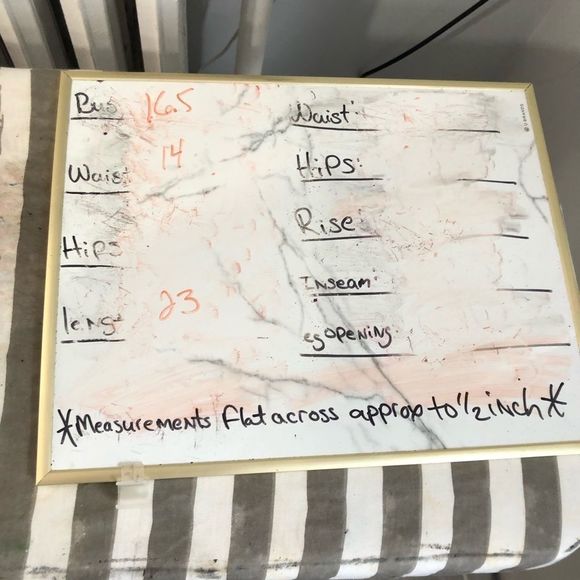 Bus 16.5
Waist 14
Hips
leng 23
Waist:
Hips:
Rise:
Inseam:
eg opening:
*Measurements flat across approx to 1/2 inch*